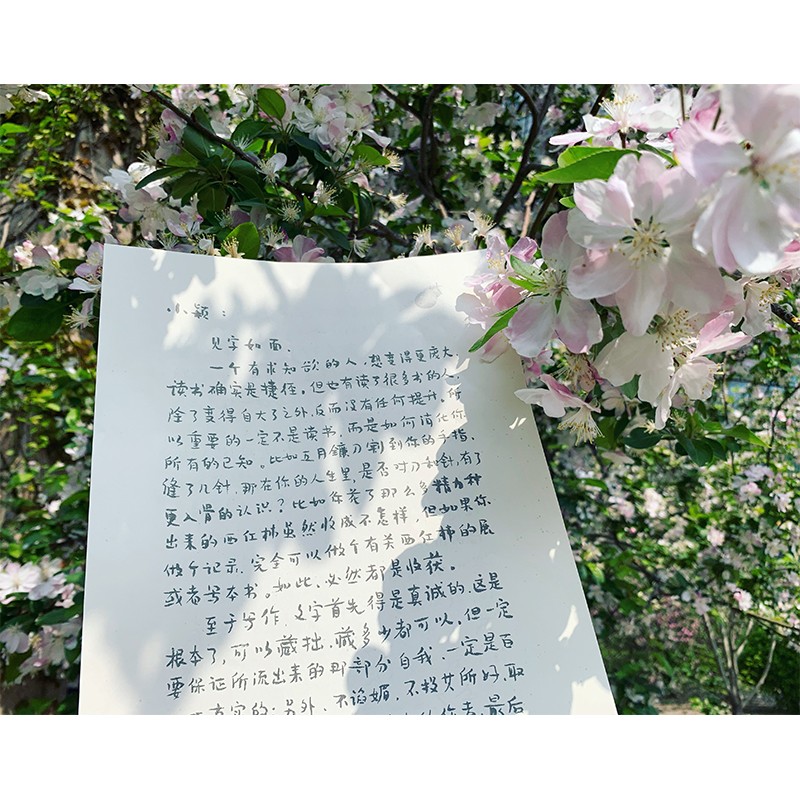 小颖：
见字如面.
一个有求知欲的人,想变得更庞大,
读书确实是捷径。但也有读了很多书的人,
除了变得自大了之外,反而没有任何提升。所
以重要的一定不是读书,而是如何消化你
所有的已知。比如五月镰刀割到你的手指,
缝了几针,那在你的人生里,是否对刀和针,有了
更入骨的认识？比如你养了那么多精力种
出来的西红柿虽然收成不怎样,但如果你
做个记录,完全可以做个有关西红柿的展
或者写本书。如此,必然都是收获。
至于写作,文字首先得是真诚的,这是
根本了,可以藏拙,藏多少都可以。但一定
要保证所流出来的那部分自我,一定是百
真实的.另外,不谄媚,不投其所好,取
作者,最后